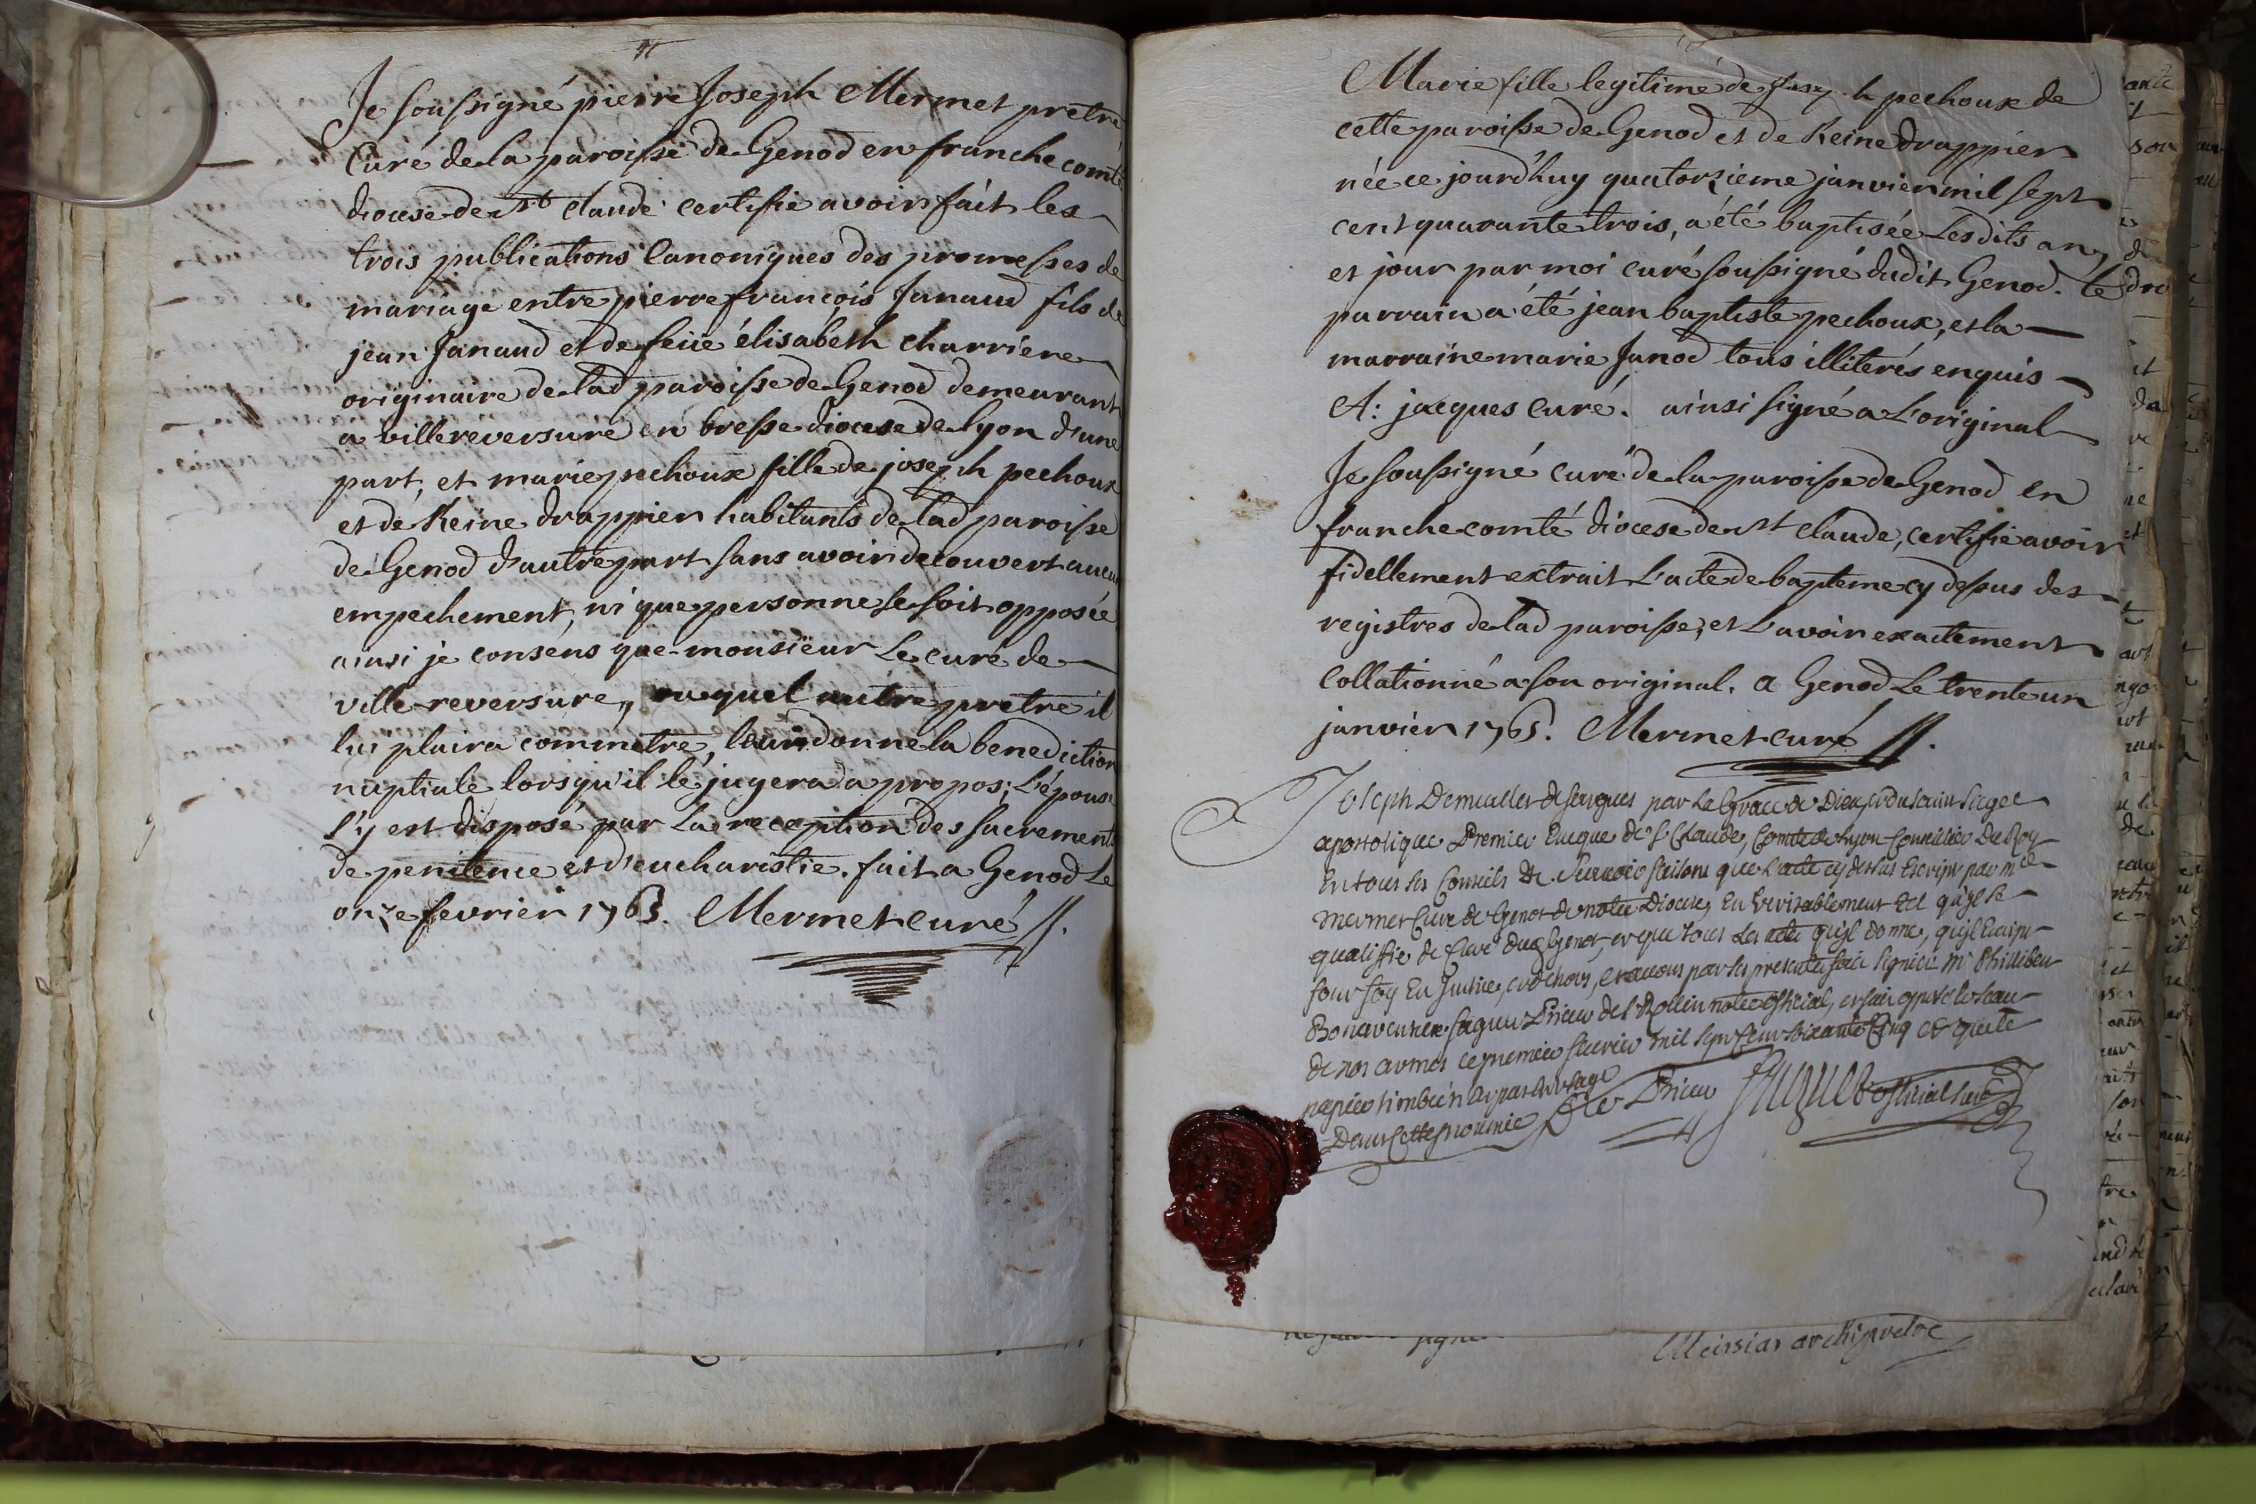 Je soussigné pierre Joseph Mermet pretre
Curé de la paroisse de Genod en franche comté
diocese de St claude certifie avoir fait les
trois publications Canoniques des promesses de
mariage entre pierre françois Janaud fils de
jean Janaud et de feüe élisabéth charriere
originaire de lad paroisse de Genod demeurant
a villereversure en bresse diocese de lyon d'une
part, et marie pechoux fille de joseph pechoux
et de Reine drappier habitants de lad paroisse
de Genod d'autre part sans avoir decouvert aucun
empechement, ni que personne se soit opposée
ainsi je consens que monsieur Le curé de
ville reversure, ou quel autre pretre il
lui plaira commetre, leur donne la benediction
nuptiale lorsqu'il le jugera a propos; L'épouse
s'y est disposé par La reception des sacrements
de penitence et d'eucharistie. fait a Genod Le
onze fevrier 1765. Mermet curé
Marie fille legitime de Joseph pechoux de
cette paroisse de Genod et de Reine drappier
née ce jourd'huy quatorzieme janvier mil sept
cent quarante trois, a été baptisée Lesdits an
et jour par moi curé soussigné dudit Genod. le
parrain a été jean baptiste pechoux, et la
marraine marie Janod tous illiterés enquis
A: jacques curé. ainsi signé a L'original
Je soussigné curé de la paroisse de Genod en
franche comté diocese de St Claude, certifie avoir
fidellement extrait L'acte de bapteme cy dessus des
registres de lad paroisse, et L'avoir exactement
Collationné a son original. a Genod Le trente un
janvier 1765. Mermet curé
Joseph Demeallet de fargues par La Grace de Dieu, et du saint siege
apostolique Premier Eveque de St Claude, Comte de Lyon Conseiller Du Roy
En tous ses Conseils &c scavoir faisons que l'acte cy dessus Escript par Mre
Mermet Curé de Genot de notre Diocese, En veritablement tel qu'il se
qualiffie de Curé dud Genot, et que tous Les actes qu'il donne, qu'il Escript
font foy En Justice, et dehors, et avons par ses presentes fait signer Mr Philibert
Bonaventure Prieur de notre official, et fait apposer le sceau
de nos armes ce premier fevrier mil sept Cent soixante Cinq et que le
papier timbré n'est pas En usage
Dans Cette province Prieur official
Meissiat archiprêtre